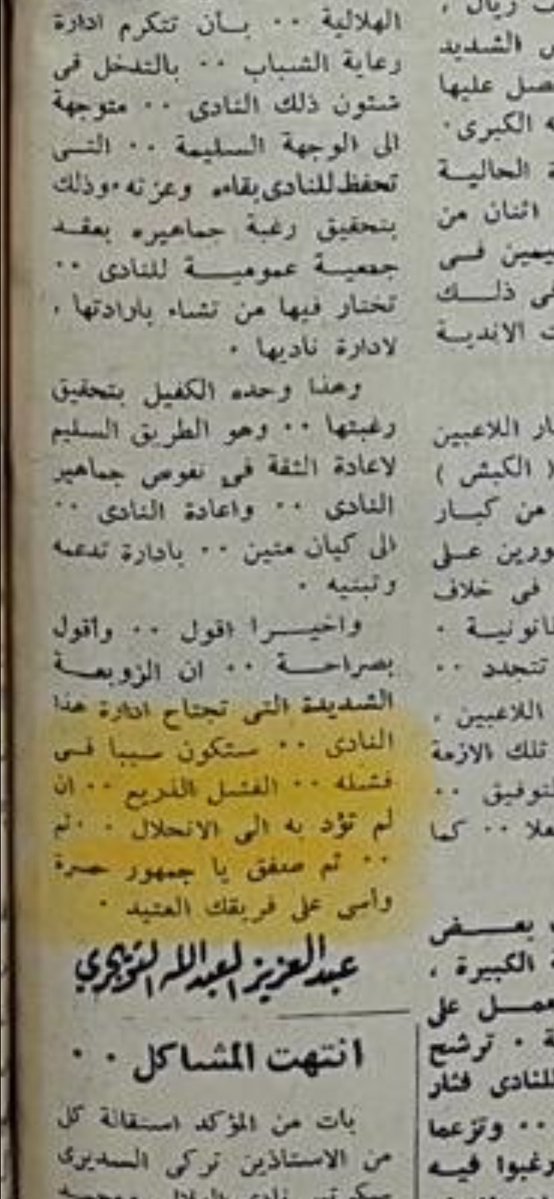 الهلالية ٠٠ بأن تتكرم ادارة
رعاية الشباب ٠٠ بالتدخل فى
شئون ذلك النادى ٠٠ متوجهة
الى الوجهة السليمة ٠٠ التى
تحفظ للنادى بقاءه وعزته ٠ وذلك
بتحقيق رغبة جماهيره بعقد
جمعية عمومية للنادى ٠٠
تختار فيها من تشاء بارادتها ،
لادارة ناديها ٠
وهذا وحده الكفيل بتحقيق
رغبتها ٠٠ وهو الطريق السليم
لاعادة الثقة فى نفوس جماهير
النادى ٠٠ واعادة النادى ٠٠
الى كيان متين ٠٠ بادارة تدعمه
وتبنيه ٠
واخيرا اقول ٠٠ وأقول
بصراحة ٠٠ ان الزوبعة
الشديدة التى تجتاح ادارة هذا
النادى ٠٠ ستكون سببا فى
فشله ٠٠ الفشل الذريع ٠٠ ان
لم تؤد به الى الانحلال ٠٠ ثم
٠٠ ثم صفق يا جمهور حسرة
وأسى على فريقك العتيد ٠
عبدالعزيز العبدالله التويجري
انتهت المشاكل ٠٠
بات من المؤكد استقالة كل
من الاستاذين تركى السديرى
ريال ،
الشديد
عليها
الكبرى ٠
الحالية
اثنان من
فى
ذلك
الاندية
اللاعبين
( الكبش )
من كبار
على
فى خلاف
تتجدد ٠٠
اللاعبين ،
تلك الازمة
٠٠ كما
بعض
الكبيرة ،
على
٠ ترشح
للنادى فثار
٠٠ وتزعما
فيه